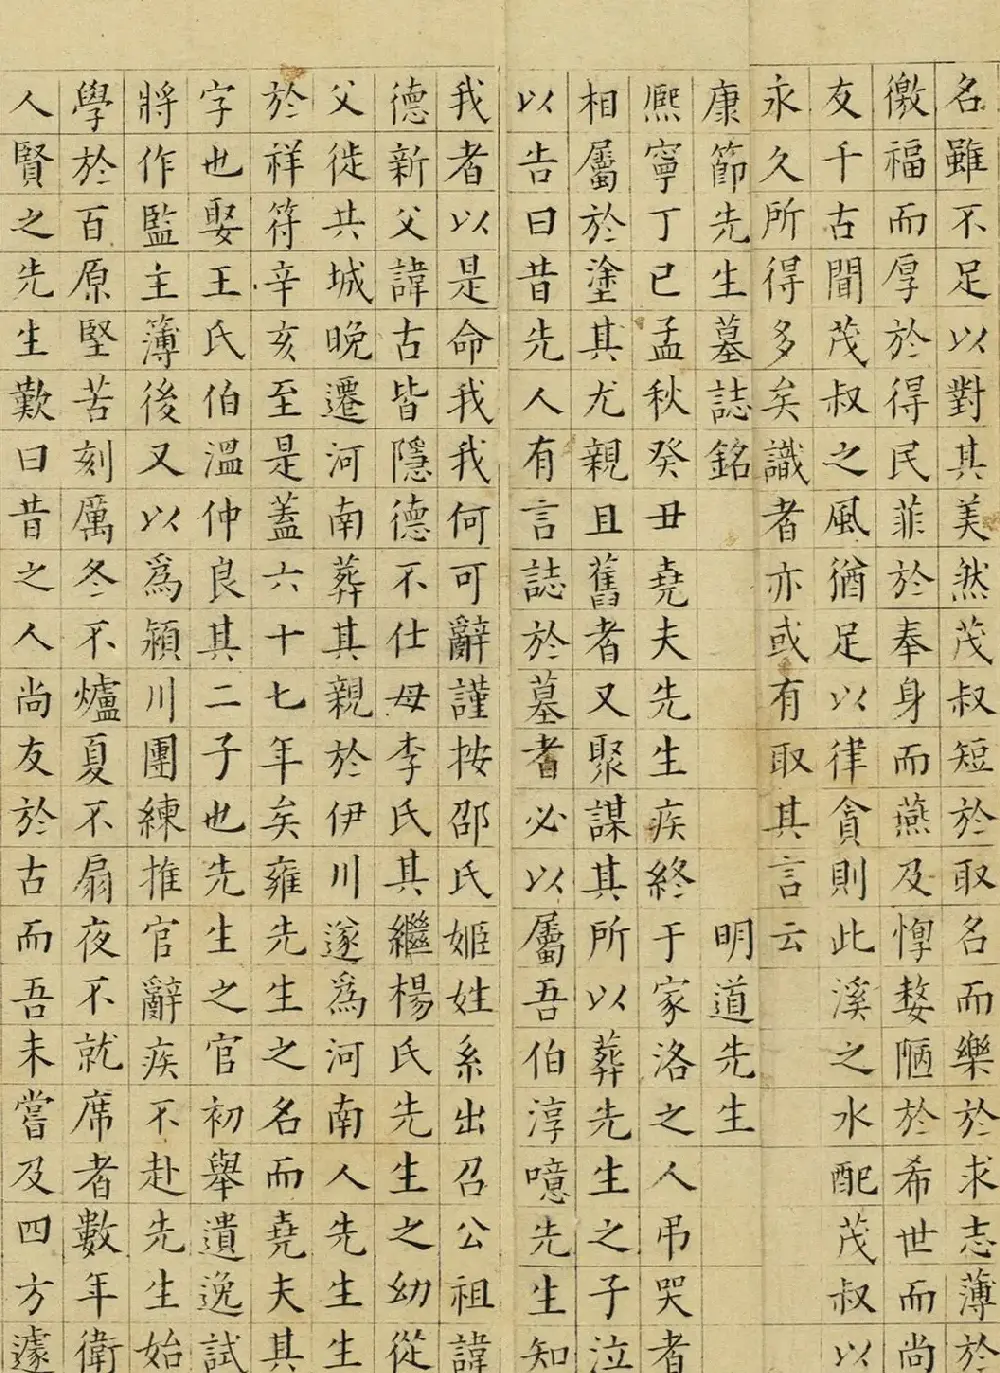 名雖不足以對其美然茂叔短於取名而樂於求志薄於
徼福而厚於得民菲於奉身而燕及惸嫠陋於希世而尚
友千古聞茂叔之風猶足以律貪則此溪之水配茂叔以
永久所得多矣識者亦或有取其言云
康節先生墓誌銘 明道先生
熈寧丁巳孟秋癸丑堯夫先生疾終于家洛之人吊哭者
相屬於塗其尤親且舊者又聚謀其所以葬先生之子泣
以告曰昔先人有言誌於墓者必以屬吾伯淳噫先生知
我者以是命我我何可辭謹按邵氏姬姓系出召公祖諱
德新父諱古皆隱德不仕母李氏其繼楊氏先生之幼從
父徙共城晚遷河南葬其親於伊川遂爲河南人先生生
於祥符辛亥至是蓋六十七年矣雍先生之名而堯夫其
字也娶王氏伯溫仲良其二子也先生之官初舉遺逸試
將作監主簿後又以爲潁川團練推官辭疾不赴先生始
學於百原堅苦刻厲冬不爐夏不扇夜不就席者數年衛
人賢之先生歎曰昔之人尚友於古而吾未嘗及四方遽